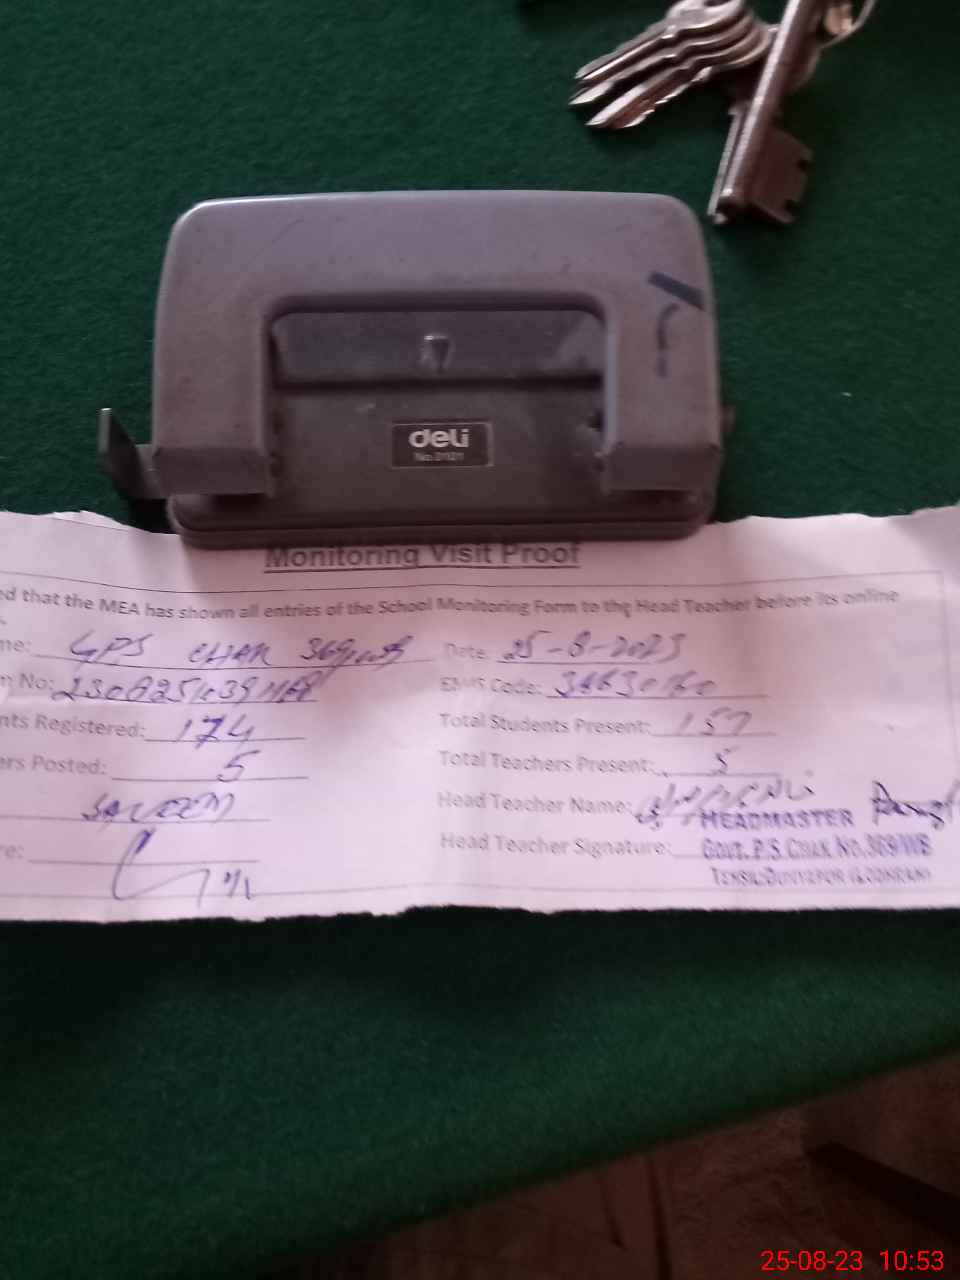 deli
No.0101
Monitoring Visit Proof
ed that the MEA has shown all entries of the School Monitoring Form to the Head Teacher before its online
me: GPS CHAK 369/WB Date: 25-8-2023
n No: EMIS Code:
nts Registered: 174 Total Students Present: 157
ers Posted: 5 Total Teachers Present: 5
SALEEM Head Teacher Name:
HEADMASTER
re: Head Teacher Signature: GOVT. P.S. CHAK NO. 369/WB
TEHSIL DUNYAPUR (LODHRAN)
25-08-23 10:53